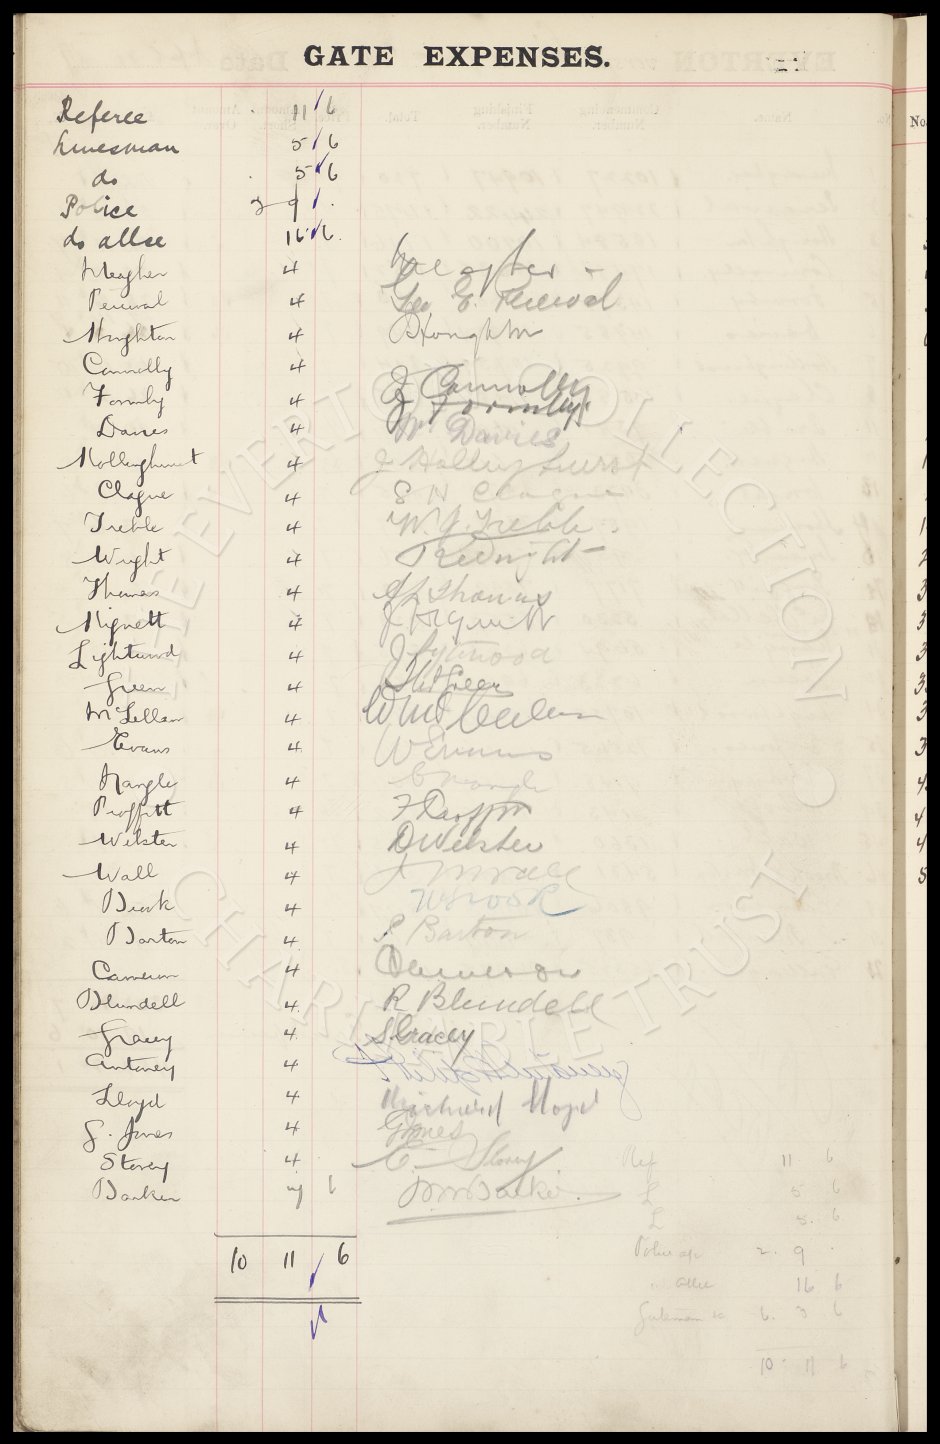 GATE EXPENSES.
Referee 11 6
Linesman 5 6
do 5 6
Police 2 9 .
do allce 16 6
Meagher 4
Percival 4 Geo E. Percival
Houghton 4 Houghton
Connolly 4 J Connolly
Formby 4 J Formby
Davies 4 W. Davies
Hollinghurst 4 J Hollinghurst
Clague 4 S H Clague
Treble 4 W. J. Treble
Wright 4
Thomas 4 Thomas
Mignett 4
Lightwood 4 J Lightwood
Green 4 Green
McLellan 4
Evans 4 W Evans
Nangle 4 Nangle
Proffitt 4 F Proffitt
Webster 4 D Webster
Wall 4 Wall
Brook 4 W Brook
Barton 4 Barton
Cameron 4 Cameron
Blundell 4 R Blundell
Gracey 4 S. Gracey
Antoney 4
Lloyd 4 Richard Lloyd
G. Jones 4 G Jones
Storey 4 C Storey
Barker 7 6 Barker
Ref 11 6
L 5 6
L 5. 6
Police 2. 9 .
allce 16 6
Gatemen 6. 3 6
10 11 6
10 11 6
THE EVERTON COLLECTION
CHARITABLE TRUST
No